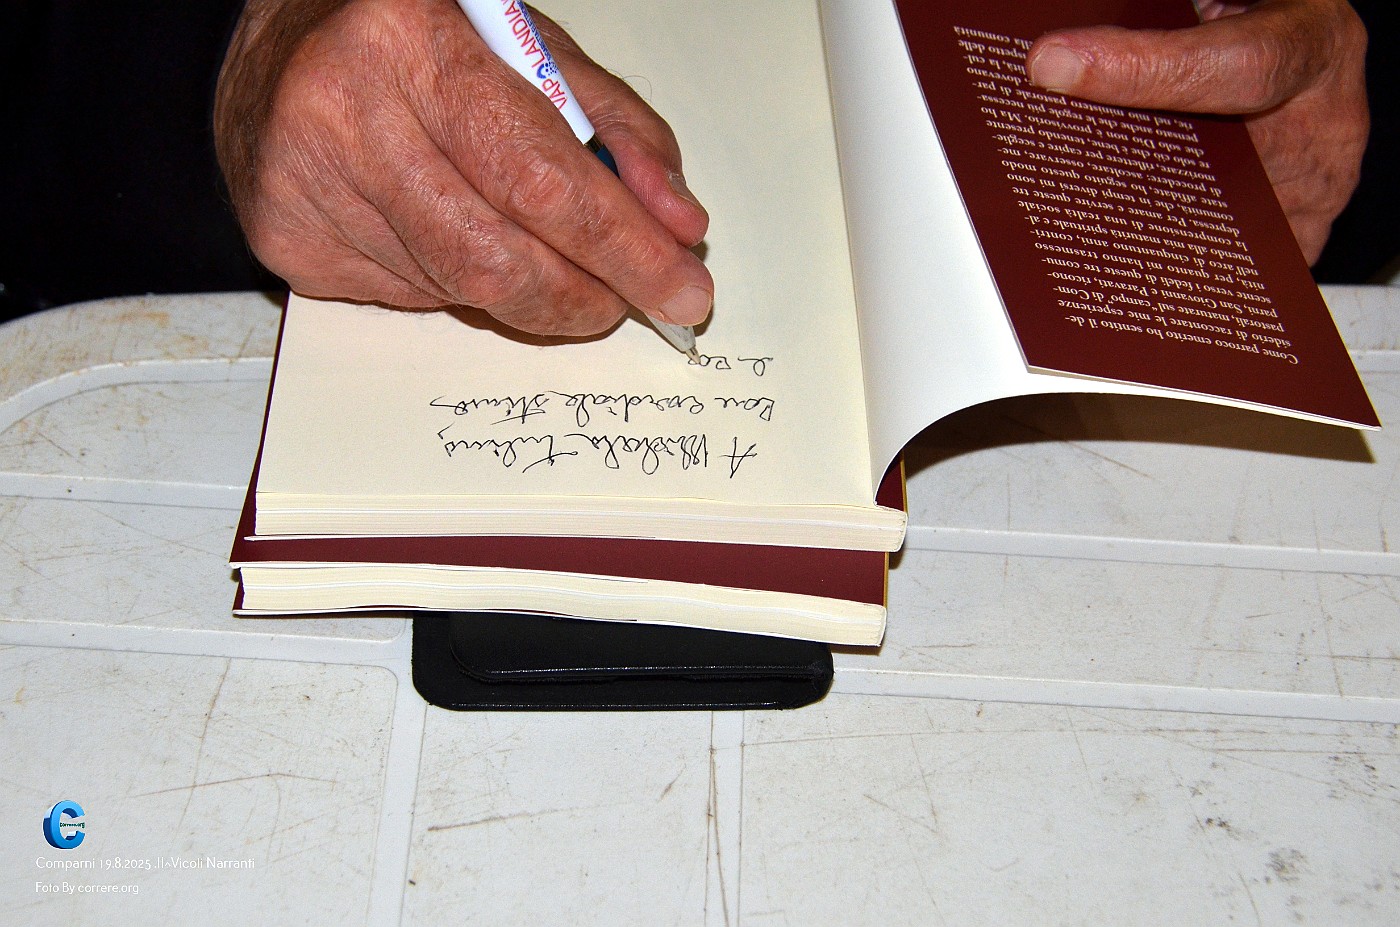 VAPOLANDIA
Come parroco emerito ho sentito il de-
siderio di raccontare le mie esperienze
pastorali, maturate sul “campo” di Com-
parni, San Giovanni e Paravati, ricono-
scente verso i fedeli di queste tre comu-
nità per quanto mi hanno trasmesso
nell'arco di cinquantuno anni, contri-
buendo alla mia maturità spirituale e al-
la comprensione di una realtà sociale
depressa. Per amare e servire queste tre
comunità, che in tempi diversi mi sono
state affidate, ho seguito questo modo
di procedere: ascoltare, osservare, me-
morizzare, riflettere per capire e sceglie-
re solo ciò che è bene, tenendo presente
che solo Dio non è provvisorio. Ma ho
pensato anche alle regole più necessa-
rie, nel mio ministero pastorale di par-
dovevano
rispetto delle
la col-
alla comunità
A
Con cordiale stima
e
correre.org
Comparni 19.8.2025 .II^Vicoli Narranti
Foto By correre.org